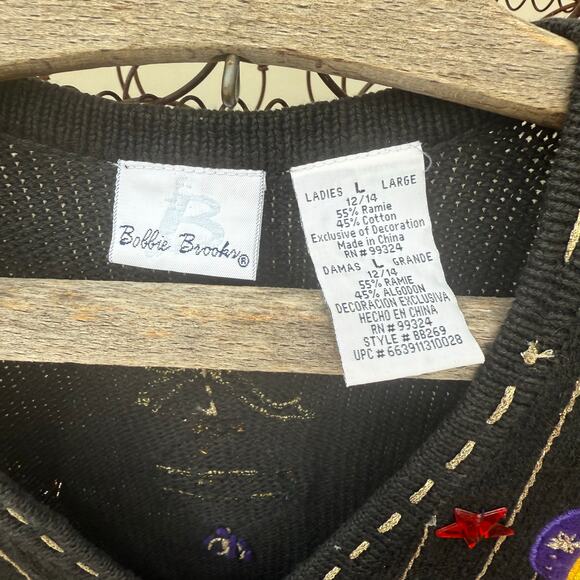 B
Bobbie Brooks®
LADIES L LARGE
12/14
55% Ramie
45% Cotton
Exclusive of Decoration
Made in China
RN# 99324
DAMAS L GRANDE
12/14
55% RAMIE
45% ALGODON
DECORACION EXCLUSIVA
HECHO EN CHINA
RN# 99324
STYLE # BB269
UPC # 663911310028